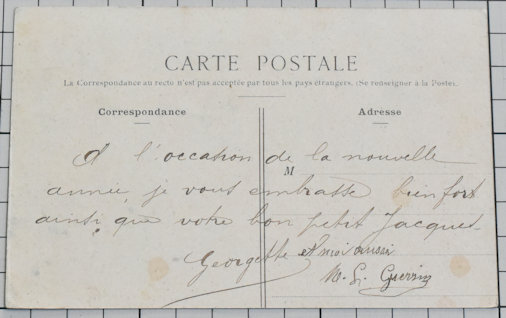 CARTE POSTALE
La Correspondance au recto n'est pas acceptée par tous les pays étrangers. (Se renseigner à la Poste).
Correspondance
Adresse
M
A l'occasion de la nouvelle
année, je vous embrasse bien fort
ainsi que votre bon petit Jacques.
Georgette et moi aussi
M. G. Guerrin